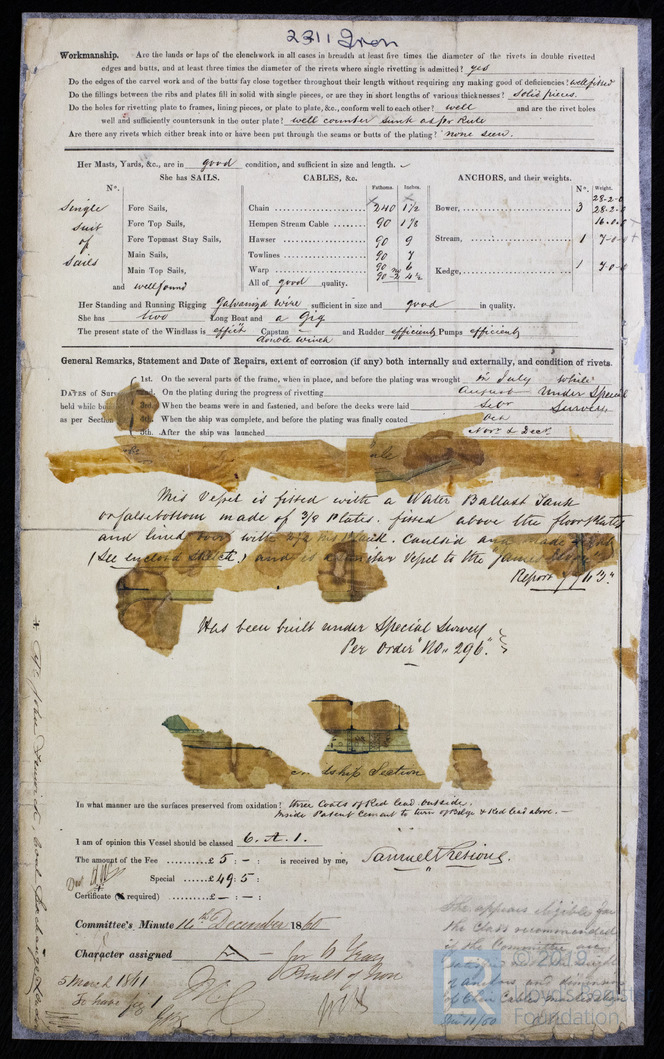 2311 Iron
Workmanship. Are the lands or laps of the clenchwork in all cases in breadth at least five times the diameter of the rivets in double rivetted
edges and butts, and at least three times the diameter of the rivets where single rivetting is admitted? yes
Do the edges of the carvel work and of the butts fay close together throughout their length without requiring any making good of deficiencies? well fitted
Do the fillings between the ribs and plates fill in solid with single pieces, or are they in short lengths of various thicknesses? Solid pieces.
Do the holes for rivetting plate to frames, lining pieces, or plate to plate, &c., conform well to each other? well and are the rivet holes
well and sufficiently countersunk in the outer plate? well counter sunk as per Rule
Are there any rivets which either break into or have been put through the seams or butts of the plating? none seen.
Her Masts, Yards, &c., are in good condition, and sufficient in size and length.
She has SAILS. CABLES, &c. ANCHORS, and their weights.
N°. Fathoms. Inches. N°. Weight.
Single Fore Sails, Chain 240 1 1/2 Bower, 3 28-2-0
Suit Fore Top Sails, Hempen Stream Cable 90 28-2-0
of Fore Topmast Stay Sails, Hawser 90 9 Stream, 1
Sails Main Sails, Towlines 90 7
Main Top Sails, Warp 90 6 Kedge, 1
and well found All of good quality. 90 4 1/2
Her Standing and Running Rigging Galvanized wire sufficient in size and good in quality.
She has two Long Boat and a Gig
The present state of the Windlass is effict Capstan and Rudder efficient Pumps efficient
double winch
General Remarks, Statement and Date of Repairs, extent of corrosion (if any) both internally and externally, and condition of rivets.
1st. On the several parts of the frame, when in place, and before the plating was wrought in July while
DATES of Surv 2nd. On the plating during the progress of rivetting August Under Special
held while bu 3rd. When the beams were in and fastened, and before the decks were laid Sebr Survey
as per Section 4th. When the ship was complete, and before the plating was finally coated Octr
5th. After the ship was launched Novr & Decr.
This Vessel is fitted with a Water Ballast Tank
or false bottom made of 3/8 Plates. fitted above the floor Plates
and lined over with Plank. Caulked and made
(See enclosed Sketch.) and is a similar Vessel to the James
Report 7763.
Has been built under Special Survey
Per Order No. 296.
dship Section
In what manner are the surfaces preserved from oxidation? three Coats of Red lead outside.
Inside Patent Cement to turn of Bilge & Red lead above.
I am of opinion this Vessel should be classed 6. A. 1.
The amount of the Fee £5 : - : is received by me,
Samuel Presious.
Special £49 : 5 :
Certificate (if required) £- : - :
Committee's Minute 14th December 1860
Character assigned A — for 6 Years
Built of Iron
5 March 1861
To have fig 1
She appears eligible for
the Class recommended
if the Committee are
of anchors and
of Chain Cable
© 2019
Lloyd's Register
Foundation